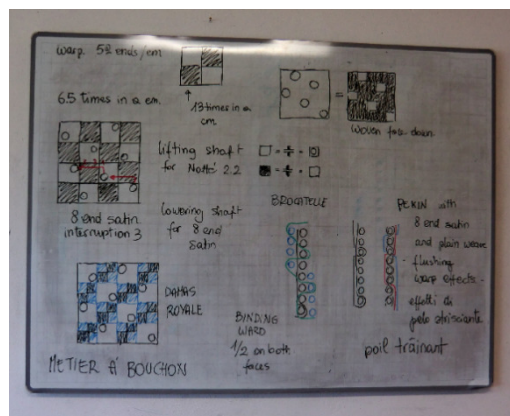 warp. 52 ends/cm
6.5 times in a cm.
13 times in a
cm.
=
woven face down
lifting shaft
for Nattè 2.2
8 end satin
interruption 3
lowering shaft
for 8 end
satin
BROCATELLE
PEKIN with
8 end satin
and plain weave
- flushing
warp effects -
effetti di
pelo strisciante
DAMAS
ROYALE
BINDING
WARD
1/2 on both
faces
poil traînant
METIER À BOUCHON